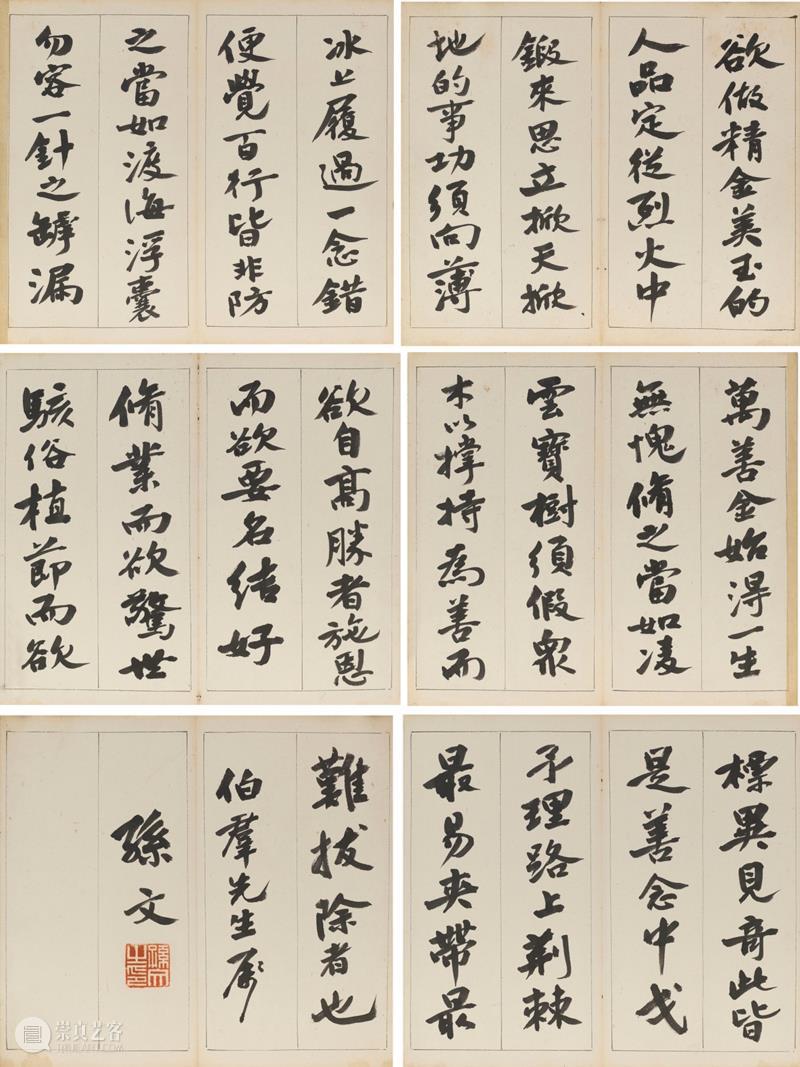 欲做精金美玉的
人品定從烈火中
鍛來思立掀天掀
地的事功須向薄
冰上履過一念錯
便覺百行皆非防
之當如渡海浮囊
勿容一針之罅漏
萬善全始得一生
無愧脩之當如凌
雲寶樹須假眾
木以撐持為善而
欲自高勝者施恩
而欲要名結好
脩業而欲驚世
駭俗植節而欲
標異見奇此皆
是善念中戈
矛理路上荊棘
最易夾帶最
難拔除者也
伯羣先生屬
孫文
孫文之印
崇真艺客